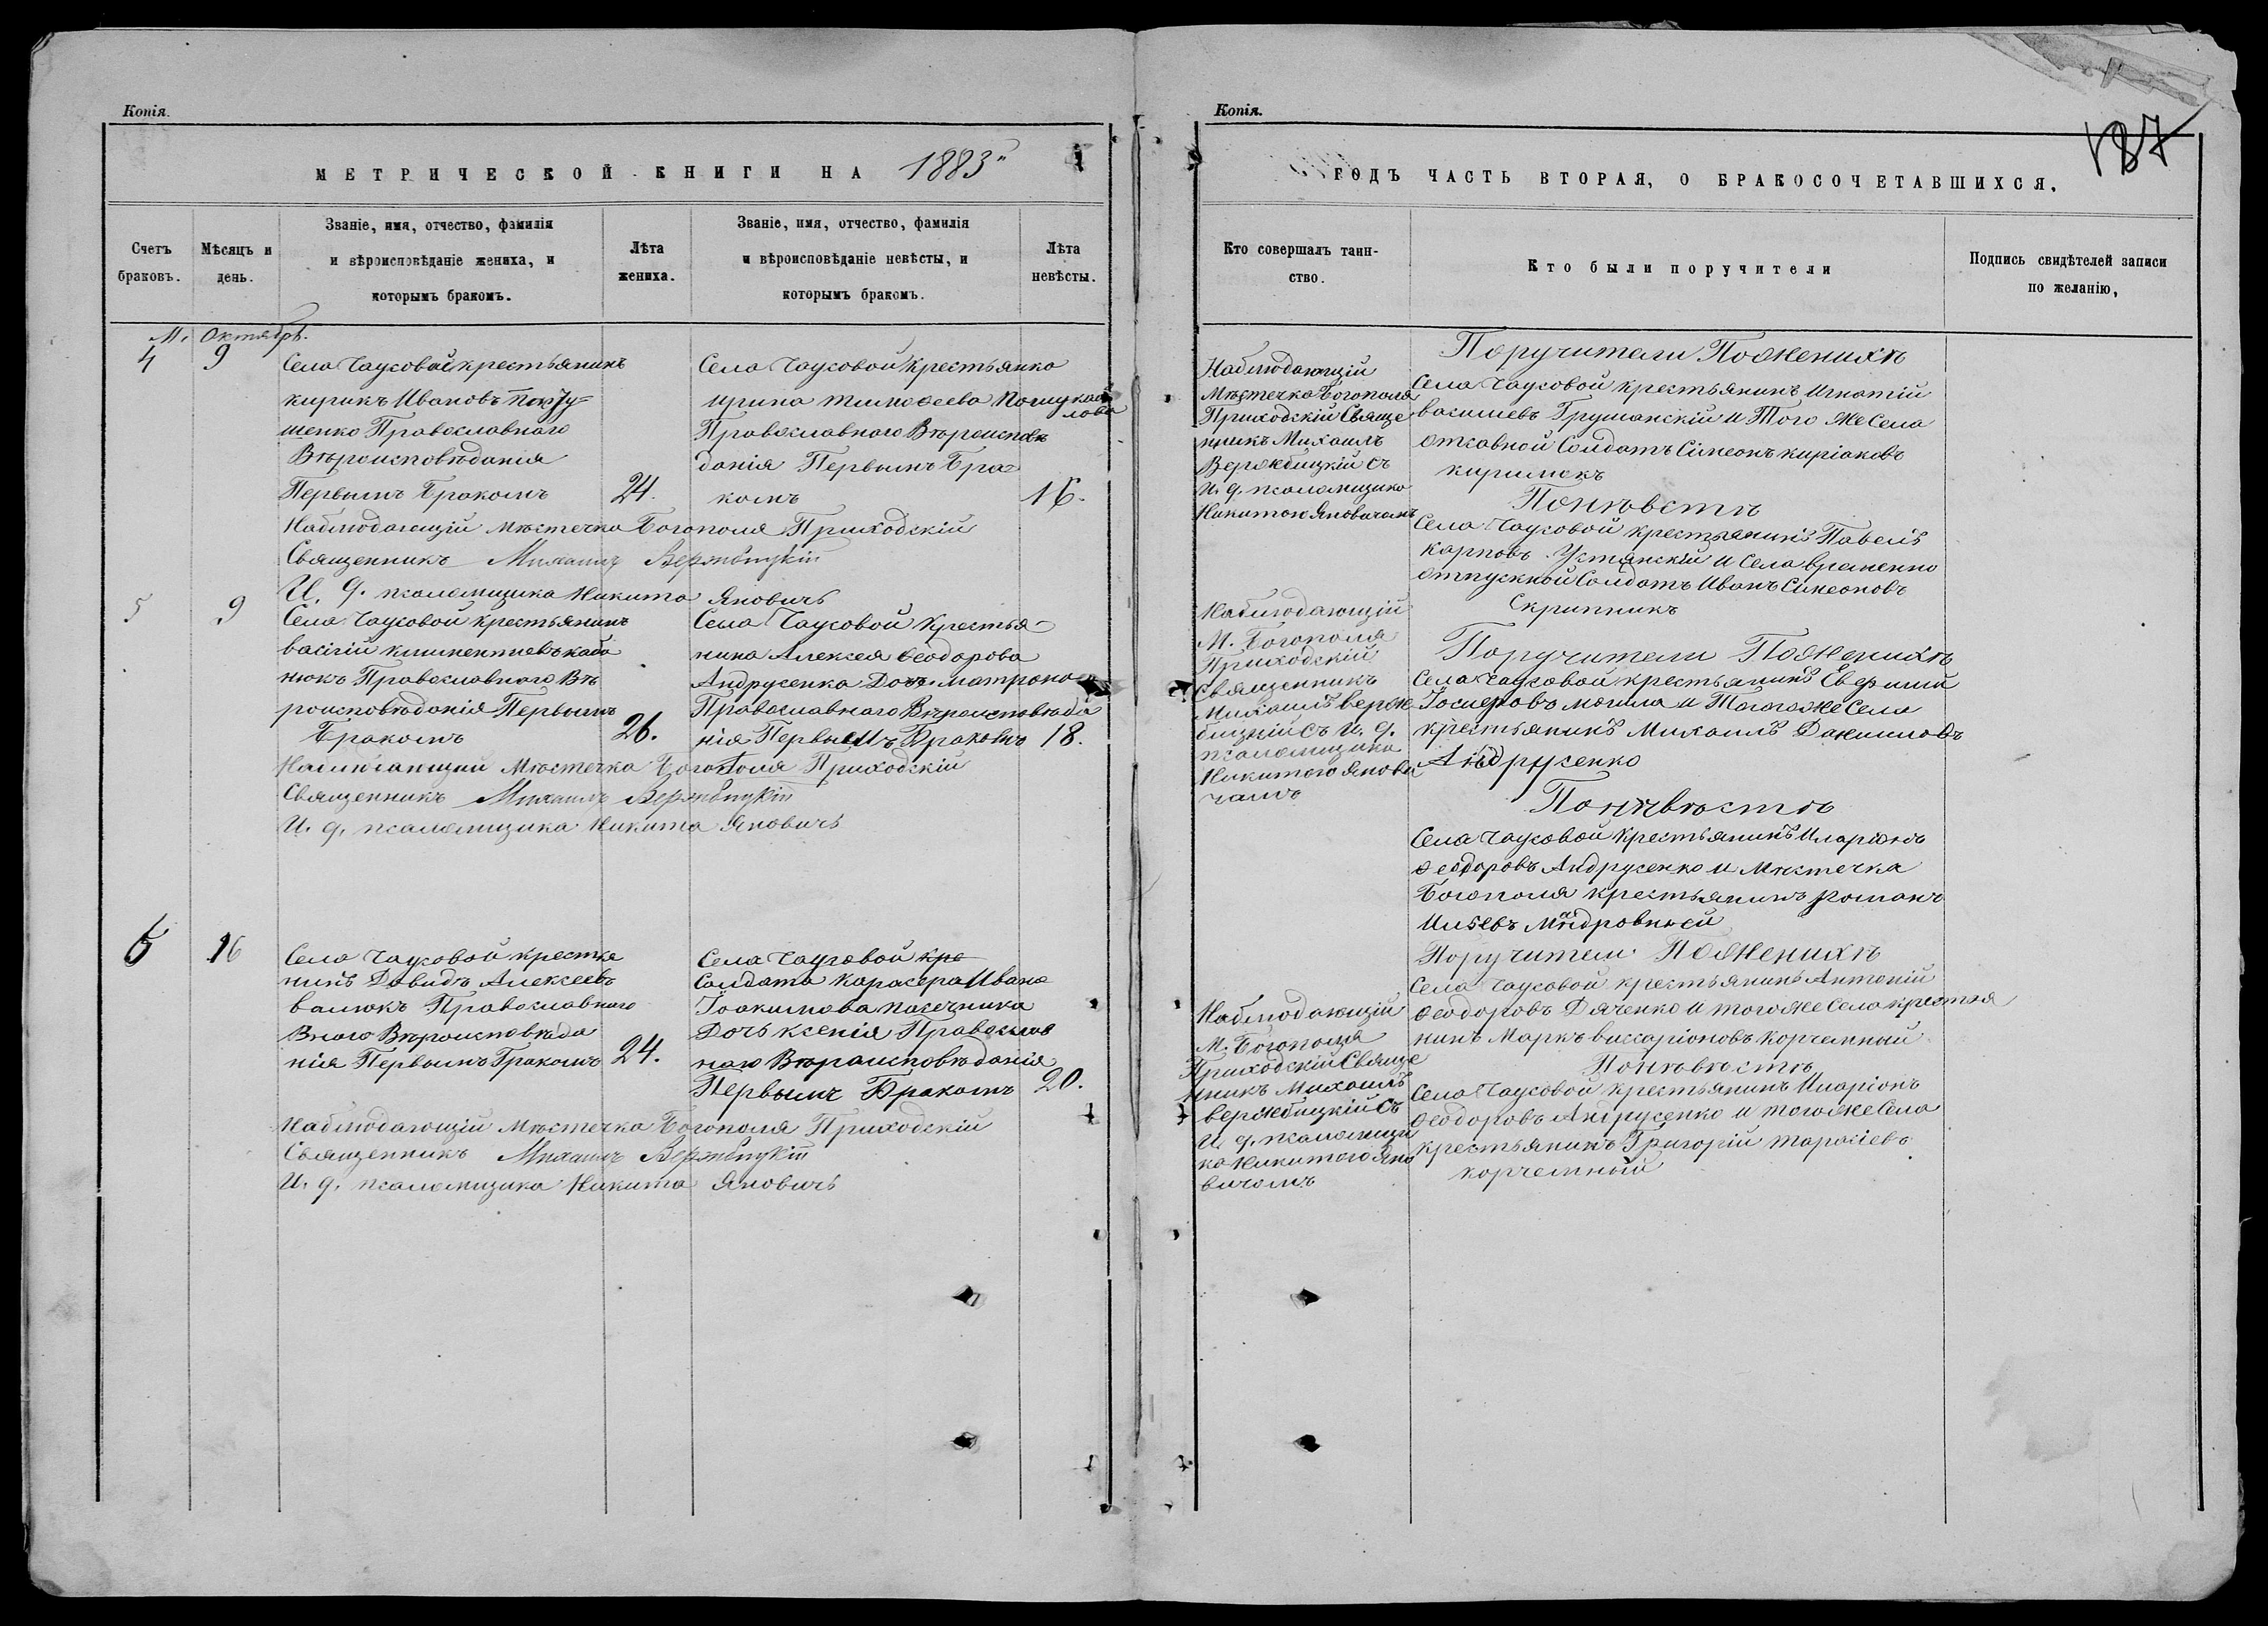 Копія.
МЕТРИЧЕСКОЙ КНИГИ НА 1883
Счетъ браковъ.
Мѣсяцъ и день.
Званіе, имя, отчество, фамилія и вѣроисповѣданіе жениха, и которымъ бракомъ.
Лѣта жениха.
Званіе, имя, отчество, фамилія и вѣроисповѣданіе невѣсты, и которымъ бракомъ.
Лѣта невѣсты.
М. Октябрь.
4
9
Села Чаусовой крестьянинъ
кирикъ Ивановъ
шенко Православнаго
Вѣроисповѣданія
Первымъ Бракомъ
24.
Села Чаусовой крестьянка
ирина тимофеева
Православнаго Вѣроисповѣ
данія Первымъ Бра
комъ
16.
Наблюдающій мѣстечка Богополя Приходскій
Священникъ Михаилъ Вержбицкій
И. д. псаломщика Никита Яновичъ
5
9
Села Чаусовой крестьянинъ
васілій климентиевъ
нюкъ Православнаго Вѣ
роисповѣданія Первымъ
Бракомъ
26.
Села Чаусовой крестья
нина Алексея Ѳеодорова
Андрусенка Дочь матрона
Православнаго Вѣроисповѣда
нія Первымъ Бракомъ
18.
Наблюдающій мѣстечка Богополя Приходскій
Священникъ Михаилъ Вержбицкій
И. д. псаломщика Никита Яновичъ
6
16
Села Чаусовой крестья
нинъ Давидъ Алексеевъ
валюкъ Православнаго
Вѣроисповѣда
нія Первымъ Бракомъ
24.
Села Чаусовой кре
Солдата Карасера Ивана
Іоакимова пасечника
Дочь ксенія Православ
наго Вѣроисповѣданія
Первымъ Бракомъ
20.
Наблюдающій мѣстечка Богополя Приходскій
Священникъ Михаилъ Вержбицкій
И. д. псаломщика Никита Яновичъ
Копія.
187
ГОДЪ ЧАСТЬ ВТОРАЯ, О БРАКОСОЧЕТАВШИХСЯ.
Кто совершалъ таинство.
Кто были поручители
Подпись свидѣтелей записи по желанію,
Наблюдающій
Мѣстечка Богополя
Приходскій Свяще
нникъ Михаилъ
Вержбицкій съ
И. д. псаломщика
Никитою Яновичемъ
Поручители По Женихѣ
Села Чаусовой крестьянинъ Игнатій
василиевъ Грушанскій и Того же Села
отставной Солдатъ Сімеонъ киріаковъ
кирилюкъ
По невѣстѣ
Села Чаусовой крестьянинъ Павелъ
карповъ Устянскій и Села временно
отпускной Солдатъ Иванъ Симеоновъ
Скрипникъ
Наблюдающій
М. Богополя
Приходскій
Священникъ
Михаилъ верж
бицкій съ И. д.
псаломщика
Никитою Янови
чемъ
Поручители По Женихѣ
Села Чаусовой крестьянинъ Ефимій
Іосифовъ могила и Того же Села
крестьянинъ Михаилъ Даниловъ
Андрусенко
По невѣстѣ
Села Чаусовой Крестьянинъ Иларіонъ
Ѳеодоровъ Андрусенко и Мѣстечка
Богополя крестьянинъ романъ
Илиевъ
Наблюдающій
М. Богополя
Приходскій Свяще
нникъ Михаилъ
вержбицкій съ
И. д. псаломщи
ка Никитою Яно
вичемъ
Поручители По Женихѣ
Села Чаусовой крестьянинъ Антоній
Ѳеодоровъ Дяченко и того же Села крестья
нинъ Маркъ виссаріоновъ Корчемный
По невѣстѣ
Села Чаусовой крестьянинъ Иларіонъ
Ѳеодоровъ Андрусенко и того же Села
крестьянинъ Григорій тарасіевъ
корчемный